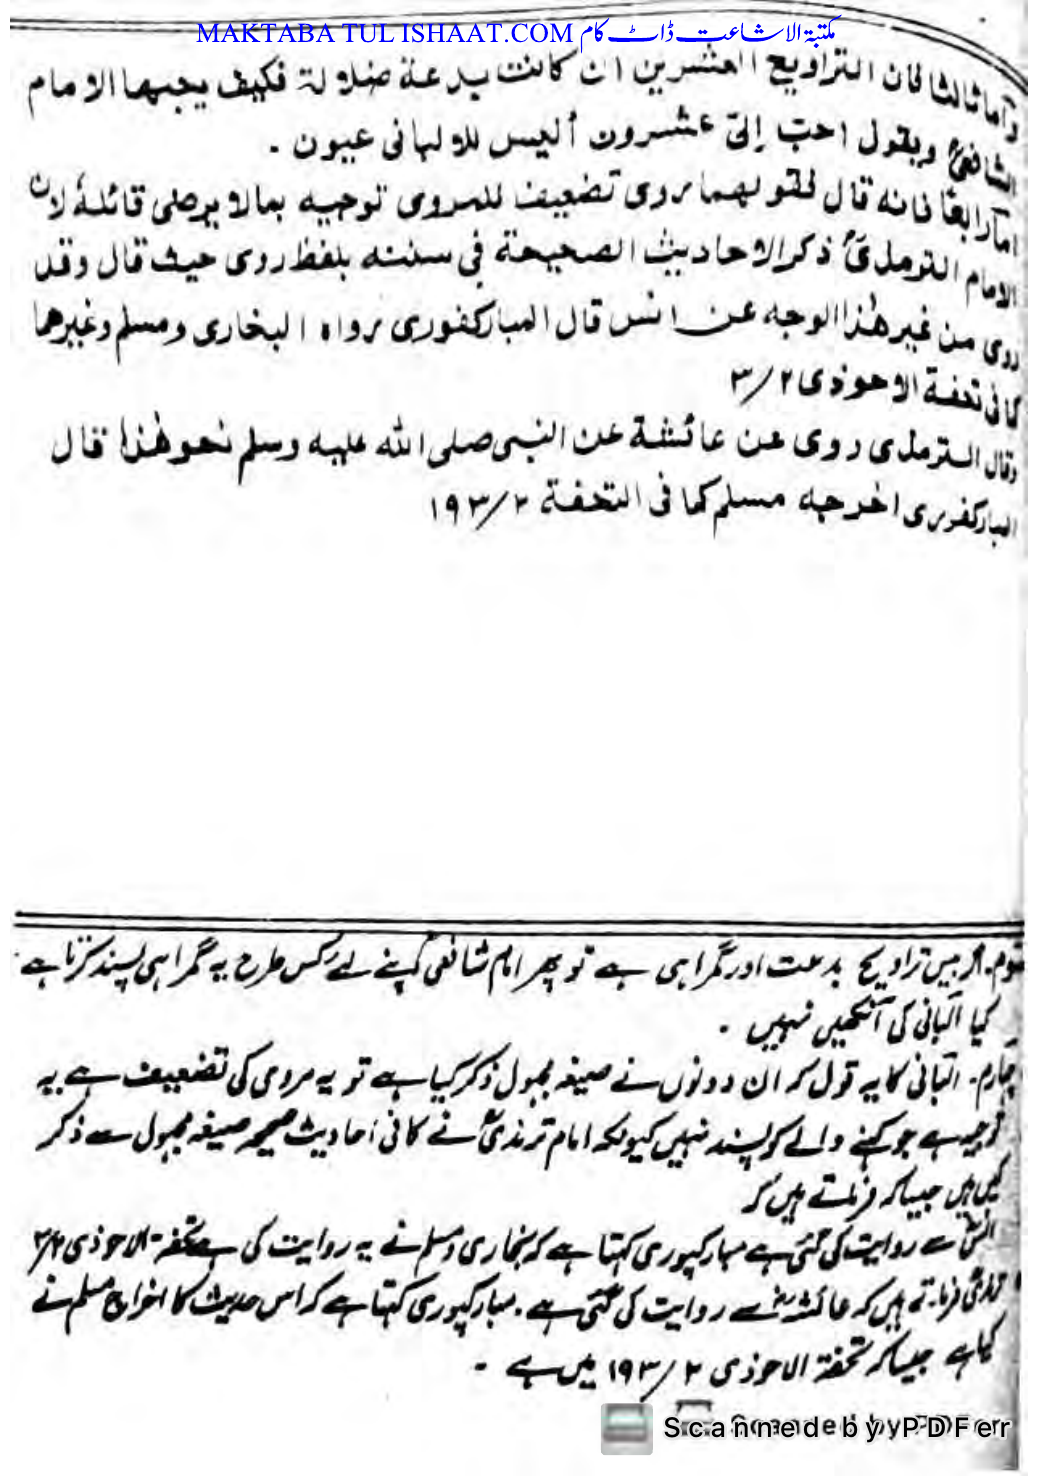 MAKTABA TUL ISHAAT.COM مکتبۃ الاشاعت ڈاٹ کام
وأما ثالثا فان التراويح العشرين ان كانت بدعة ضلالة فكيف يحبها الامام
الشافعیؒ ويقول احبّ إلیّ عشرون أليس للالبانی عيون ۔
امّا رابعًا فانه قال لقولهما روی تضعيف للمروی توجيه بمالا يرضی قائلهٗ لان
الامام الترمذیؒ ذكر الاحاديث الصحيحة فی سننه بلفظ روی حيث قال وقد
روی من غير هٰذا الوجه عن انس قال المباركفوری رواه البخاری ومسلم وغيرهما
كما فی تحفة الاحوذی ۲/۳
وقال الترمذی روی عن عائشة عن النبی صلی الله عليه وسلم نحو هٰذا قال
المباركفوری اخرجه مسلم كما فی التحفة ۲/۱۹۳
سوم۔ اگر بیس تراویح بدعت اور گمراہی ہے تو پھر امام شافعی اپنے لئے کس طرح یہ گمراہی پسند کرتا ہے۔
کیا البانی کی آنکھیں نہیں ۔
چہارم۔ البانی کا یہ قول کہ ان دونوں نے صیغہ مجہول ذکر کیا ہے تو یہ مروی کی تضعیف ہے یہ
توجیہ ہے جو کہنے والے کو پسند نہیں کیونکہ امام ترمذیؒ نے کافی احادیث صحیحہ صیغہ مجہول سے ذکر
کیں ہیں جیسا کہ فرماتے ہیں کہ
انسؓ سے روایت کی گئی ہے مبارکپوری کہتا ہے کہ بخاری و مسلم نے یہ روایت کی ہے تحفۃ الاحوذی ۲/۳
ترمذی فرماتے ہیں کہ عائشہؓ سے روایت کی گئی ہے۔ مبارکپوری کہتا ہے کہ اس حدیث کا اخراج مسلم نے
کیا ہے جیسا کہ تحفۃ الاحوذی ۲/۱۹۳ میں ہے ۔
Scanned by PDFer